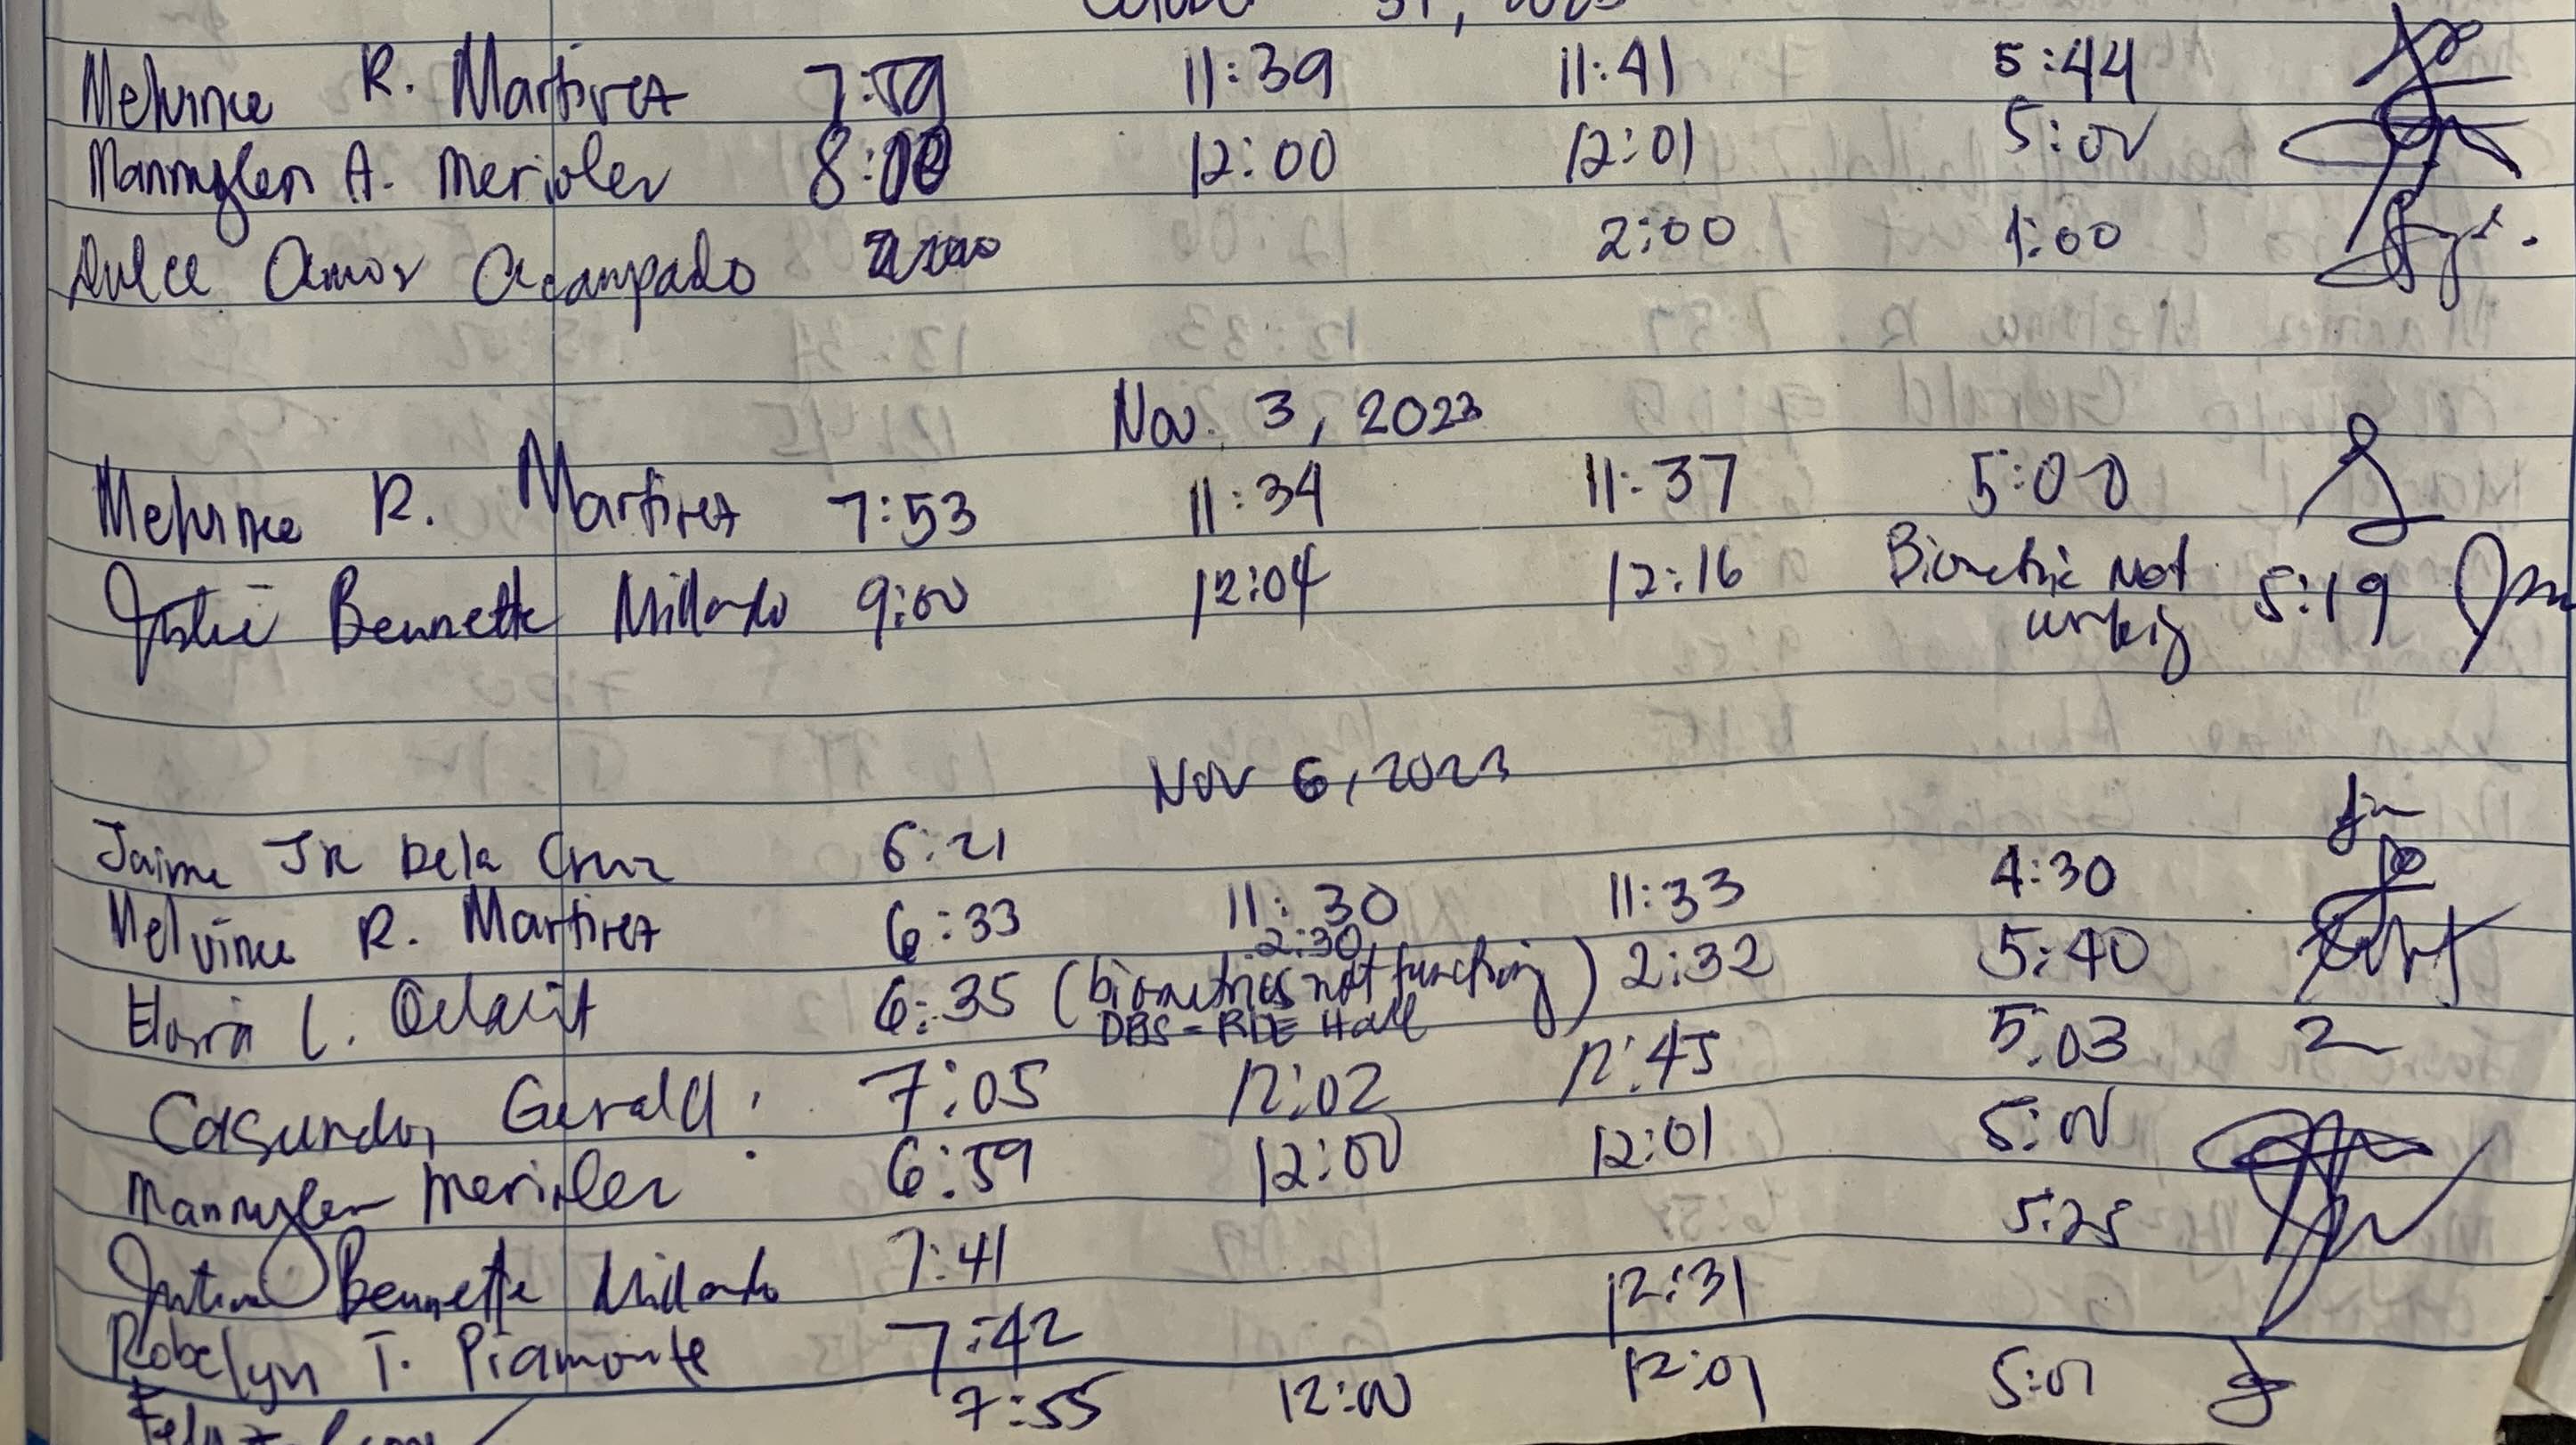 31, 2023
Melvince R. Martirez 7:59 11:39 11:41 5:44
Mannylen A. Merioles 8:00 12:00 12:01 5:00
Dulce Amor Ocampado 2:00 1:00
Nov. 3, 2023
Melvince R. Martirez 7:53 11:34 11:37 5:00
Bennette Millado 9:00 12:04 12:16 Biometric Not 5:19
working
Nov 6, 2023
Jaime JR Dela Cruz 6:21
Melvince R. Martirez 6:33 11:30 11:33 4:30
2:30
L. 6:35 (biometrics not functning) 2:32 5:40
DBS - RDE Hall
Casundo, Gerald 7:05 12:02 12:45 5:03
Mannylen Merioles 6:59 12:00 12:01 5:00
Bennette Millado 7:41 5:25
Robelyn T. Piamonte 7:42 12:31
7:55 12:00 12:01 5:01